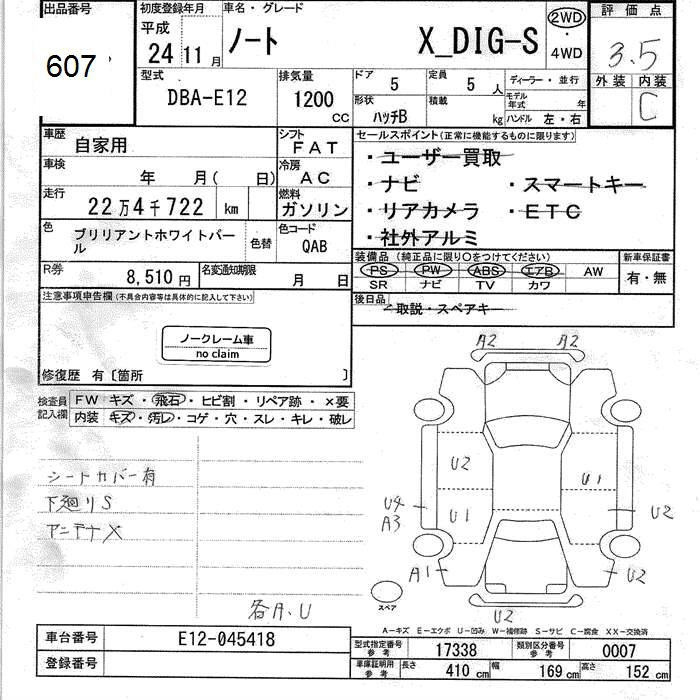 出品番号 607
初度登録年月 平成 24 11 月
車名・グレード ノート X_DIG-S
2WD ・ 4WD
評価点 3.5
外装 内装 C
型式 DBA-E12
排気量 1200 CC
ドア 5
定員 5 人
ディーラー・並行
形状 ハッチB
積載 kg
モデル年式 年
ハンドル 左・右
車歴 自家用
シフト FAT
車検 年 月( 日)
冷房 AC
走行 22万4千722 km
燃料 ガソリン
色 ブリリアントホワイトパール
色替
色コード QAB
R券 8,510 円
名変通知期限 月 日
セールスポイント(正常に機能するものに限ります)
・ユーザー買取
・ナビ ・スマートキー
・リアカメラ ・ETC
・社外アルミ
装備品(純正品に限り〇をつけてください)
PS PW ABS エアB AW
SR ナビ TV カワ
新車保証書 有・無
後日品 取説・スペアキー
注意事項申告欄(不具合内容等は具体的に記入して下さい)
ノークレーム車
no claim
修復歴 有〔箇所 〕
検査員記入欄
FW キズ・飛石・ヒビ割・リペア跡・×要
内装 キズ・汚レ・コゲ・穴・スレ・キレ・破レ
シートカバー有
下廻りS
アンテナX
各A.U
A2 A2
U2 U1
U4 A3 U1 U2
A1 U2
U2
スペア
A-キズ E-エクボ U-凹み W-補修跡 S-サビ C-腐食 XX-交換済
車台番号 E12-045418
登録番号
型式指定番号 参考 17338
類別区分番号 参考 0007
車庫証明用 参考 長さ 410 cm 幅 169 cm 高さ 152 cm